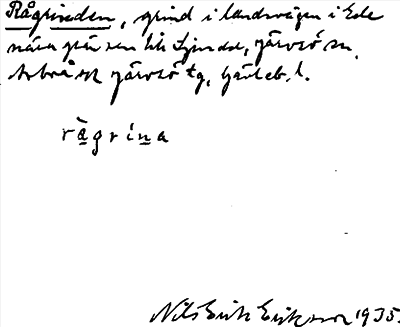 Rågrinden, grind i landsvägen i Ede
nära gränsen till Ljusdal, Järvsö sn,
Arbrå ock Järvsö tg, Gävleb. l.
rågrina
Nils Erik Eriksson 1935.